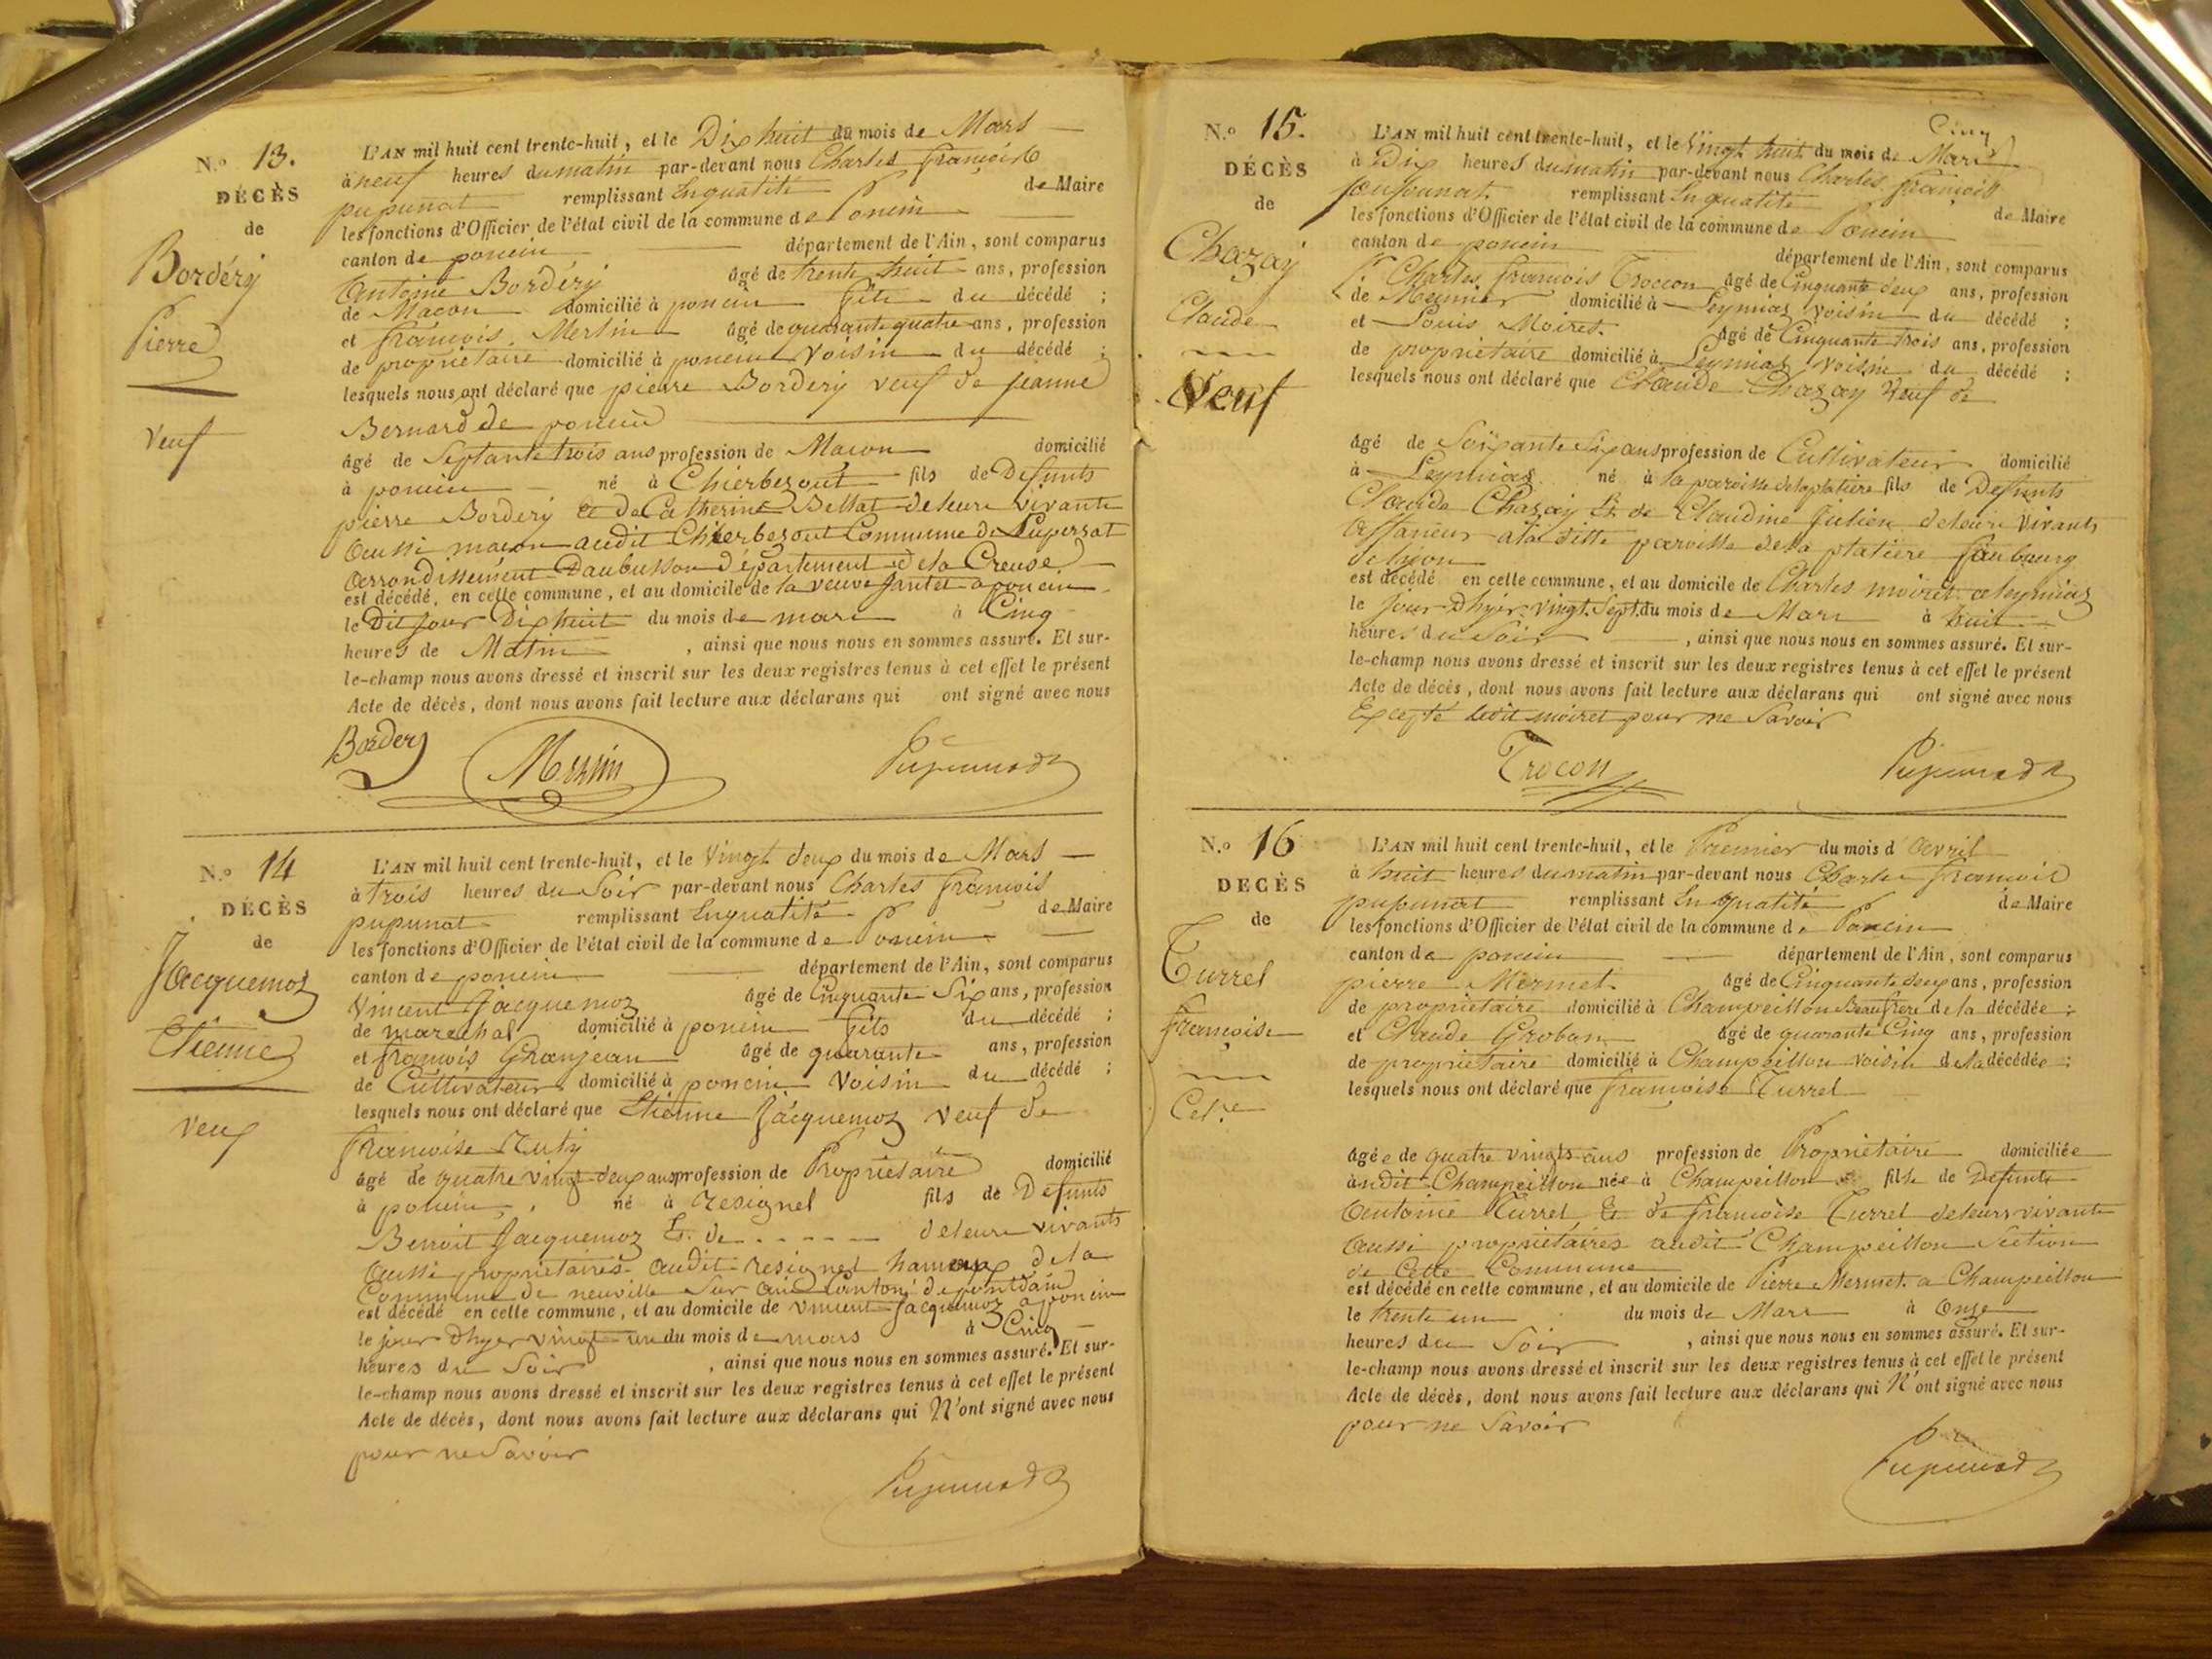 N.o 13.
DÉCÈS
de
Bordéry
Pierre
Veuf
L'AN mil huit cent trente-huit, et le Dix huit du mois de Mars
à neuf heures du matin par-devant nous Charles françois
pupunat remplissant En qualité de Maire
les fonctions d'Officier de l'état civil de la commune de Poncin
canton de poncin département de l'Ain, sont comparus
Antoine Bordéry âgé de trente huit ans, profession
de Maçon domicilié à poncin fils du décédé ;
et françois Merlin âgé de quarante quatre ans, profession
de propriétaire domicilié à poncin voisin du décédé ;
lesquels nous ont déclaré que pierre Bordery veuf de jeanne
Bernard de poncin
âgé de Septante trois ans profession de Maçon domicilié
à poncin né à Chierbezout fils de Defunts
pierre Bordery et de Catherine Bellat de leurs vivants
aussi maçon audit Chierbezout Commune de Lupersat
arrondissement Daubusson département de la Creuse
est décédé, en cette commune, et au domicile de la veuve fantet a poncin
le Dit jour Dix huit du mois de mars à Cinq
heures de Matin , ainsi que nous nous en sommes assuré. Et sur-
le-champ nous avons dressé et inscrit sur les deux registres tenus à cet effet le présent
Acte de décès, dont nous avons fait lecture aux déclarans qui ont signé avec nous
Bordery Merlin Pupunat
N.o 14
DÉCÈS
de
Jacquemoz
Etienne
Veuf
L'AN mil huit cent trente-huit, et le Vingt deux du mois de Mars
à trois heures du Soir par-devant nous Charles françois
pupunat remplissant En qualité de Maire
les fonctions d'Officier de l'état civil de la commune de Poncin
canton de poncin département de l'Ain, sont comparus
Vincent Jacquemoz âgé de Cinquante Six ans, profession
de marechal domicilié à poncin fils du décédé ;
et françois Granjean âgé de quarante ans, profession
de Cultivateur domicilié à poncin Voisin du décédé ;
lesquels nous ont déclaré que Etienne Jacquemoz veuf de
francoise Ruty
âgé de quatre vingt deux ans profession de Propriétaire domicilié
à poncin né à resignel fils de Defunts
Benoit Jacquemoz Et de - - - - - - de leurs vivants
aussi propriétaires audit resignel hameau de la
Commune de neuville Sur ain Canton de pont dain
est décédé en cette commune, et au domicile de vincent Jacquemoz a poncin
le jour Dhyer vingt un du mois de mars à Cinq
heures du Soir , ainsi que nous nous en sommes assuré. Et sur-
le-champ nous avons dressé et inscrit sur les deux registres tenus à cet effet le présent
Acte de décès, dont nous avons fait lecture aux déclarans qui N'ont signé avec nous
pour ne Savoir
Pupunat
N.o 15.
DÉCÈS
de
Chazay
Claude
Veuf
Cinq
L'AN mil huit cent trente-huit, et le Vingt huit du mois de Mars
à Dix heures du matin par-devant nous Charles françois
pupunat remplissant En qualité de Maire
les fonctions d'Officier de l'état civil de la commune de Poncin
canton de poncin département de l'Ain, sont comparus
Sr. Charles françois Trocon âgé de Cinquante deux ans, profession
de Meunier domicilié à Leymiaz voisin du décédé ;
et Louis Moiret âgé de Cinquante trois ans, profession
de propriétaire domicilié à Leymiaz voisin du décédé ;
lesquels nous ont déclaré que Claude Chazay Veuf de
âgé de Soixante Six ans profession de Cultivateur domicilié
à Leymiaz né à la paroisse de la platiere fils de Defunts
Claude Chazay Et de Claudine Julien de leurs Vivants
affaneur a la ditte paroisse de la platiere faubourg
de lion
est décédé en cette commune, et au domicile de Charles moiret a leymiaz
le jour Dhyer vingt Sept du mois de Mars à huit
heures du Soir , ainsi que nous nous en sommes assuré. Et sur-
le-champ nous avons dressé et inscrit sur les deux registres tenus à cet effet le présent
Acte de décès, dont nous avons fait lecture aux déclarans qui ont signé avec nous
Excepté ledit moiret pour ne Savoir
Trocon Pupunat
N.o 16
DÉCÈS
de
Turrel
françoise
Cel.re
L'AN mil huit cent trente-huit, et le Premier du mois d'avril
à huit heures du matin par-devant nous Charles francois
pupunat remplissant En qualité de Maire
les fonctions d'Officier de l'état civil de la commune de Poncin
canton de poncin département de l'Ain, sont comparus
pierre Mermet âgé de Cinquante deux ans, profession
de propriétaire domicilié à Champeillon Beaufrère de la décédée ;
et Claude Groban âgé de quarante Cinq ans, profession
de propriétaire domicilié à Champeillon voisin de la décédée ;
lesquels nous ont déclaré que françoise Turrel
âgée de quatre vingts ans profession de Propriétaire domiciliée
audit Champeillon née à Champeillon fille de Defunts
Antoine Turrel Et de francoise Turrel de leurs vivants
aussi propriétaires audit Champeillon Section
de Cette Commune
est décédé en cette commune, et au domicile de Pierre Mermet a Champeillon
le trente un du mois de Mars à Onze
heures du Soir , ainsi que nous nous en sommes assuré. Et sur-
le-champ nous avons dressé et inscrit sur les deux registres tenus à cet effet le présent
Acte de décès, dont nous avons fait lecture aux déclarans qui N'ont signé avec nous
pour ne Savoir
Pupunat